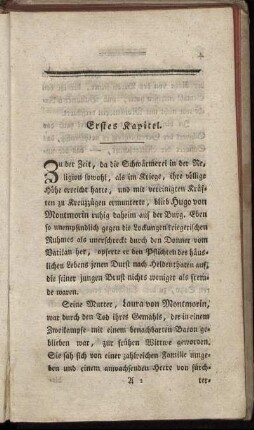 Erstes Kapitel.
Zu der Zeit, da die Schwärmerei in der Re-
ligion sowohl, als im Kriege, ihre völlige
Höhe erreicht hatte, und mit vereinigten Kräf-
ten zu Kreuzzügen ermunterte, blieb Hugo von
Montmorin ruhig daheim auf der Burg. Eben
so unempfindlich gegen die Lockungen kriegerischen
Ruhmes als unerschreckt durch den Donner vom
Vatikan her, opferte er den Pflichten des häus-
lichen Lebens jenen Durst nach Heldenthaten auf,
die seiner jungen Brust nichts weniger als frem-
de waren.
Seine Mutter, Laura von Montmorin,
war durch den Tod ihres Gemahls, der in einem
Zweikampfe mit einem benachbarten Baron ge-
blieben war, zur frühen Wittwe geworden.
Sie sah sich von einer zahlreichen Familie umge-
ben und einem anwachsenden Heere von fürch-
A 2 ter-